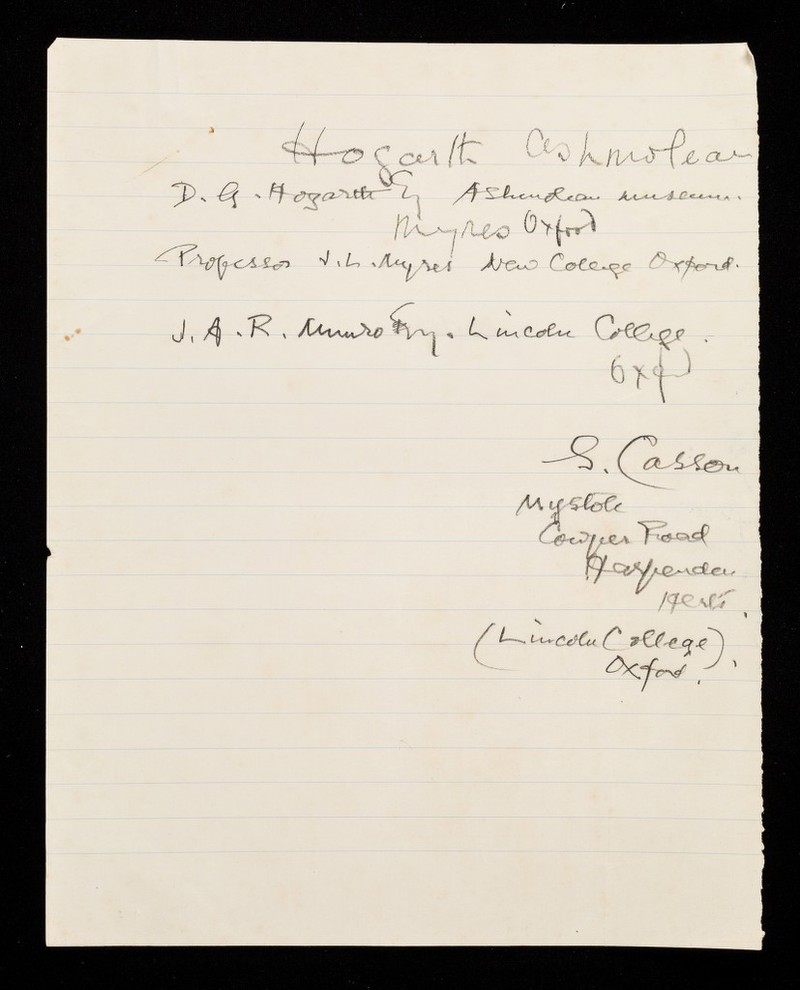 Hogarth Ashmolean
D. G. Hogarth Esq Ashmolean museum.
Myres Oxford
Professor J. L. Myres New College Oxford.
J. A. R. Munro Esq. Lincoln College.
Oxford
S. Casson
Mystole
Cowper Road
Harpenden
Herts.
(Lincoln College).
Oxford.